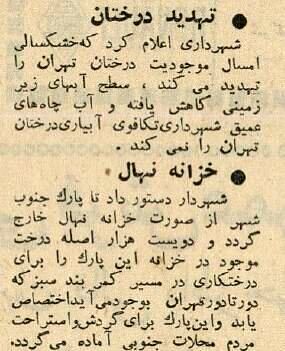 ● تهدید درختان
شهرداری اعلام کرد که خشکسالی
امسال موجودیت درختان تهران را
تهدید می کند ، سطح آبهای زیر
زمینی کاهش یافته و آب چاه‌های
عمیق شهرداری تکافوی آبیاری درختان
تهران را نمی کند .
● خزانه نهال
شهردار دستور داد تا پارك جنوب
شهر از صورت خزانه نهال خارج
گردد و دویست هزار اصله درخت
موجود در خزانه این پارك را برای
درختکاری در مسیر کمر بند سبز که
دور تا دور تهران بوجود می‌آید اختصاص
یابد و این پارك برای گردش و استراحت
مردم محلات جنوبی آماده می گردد.